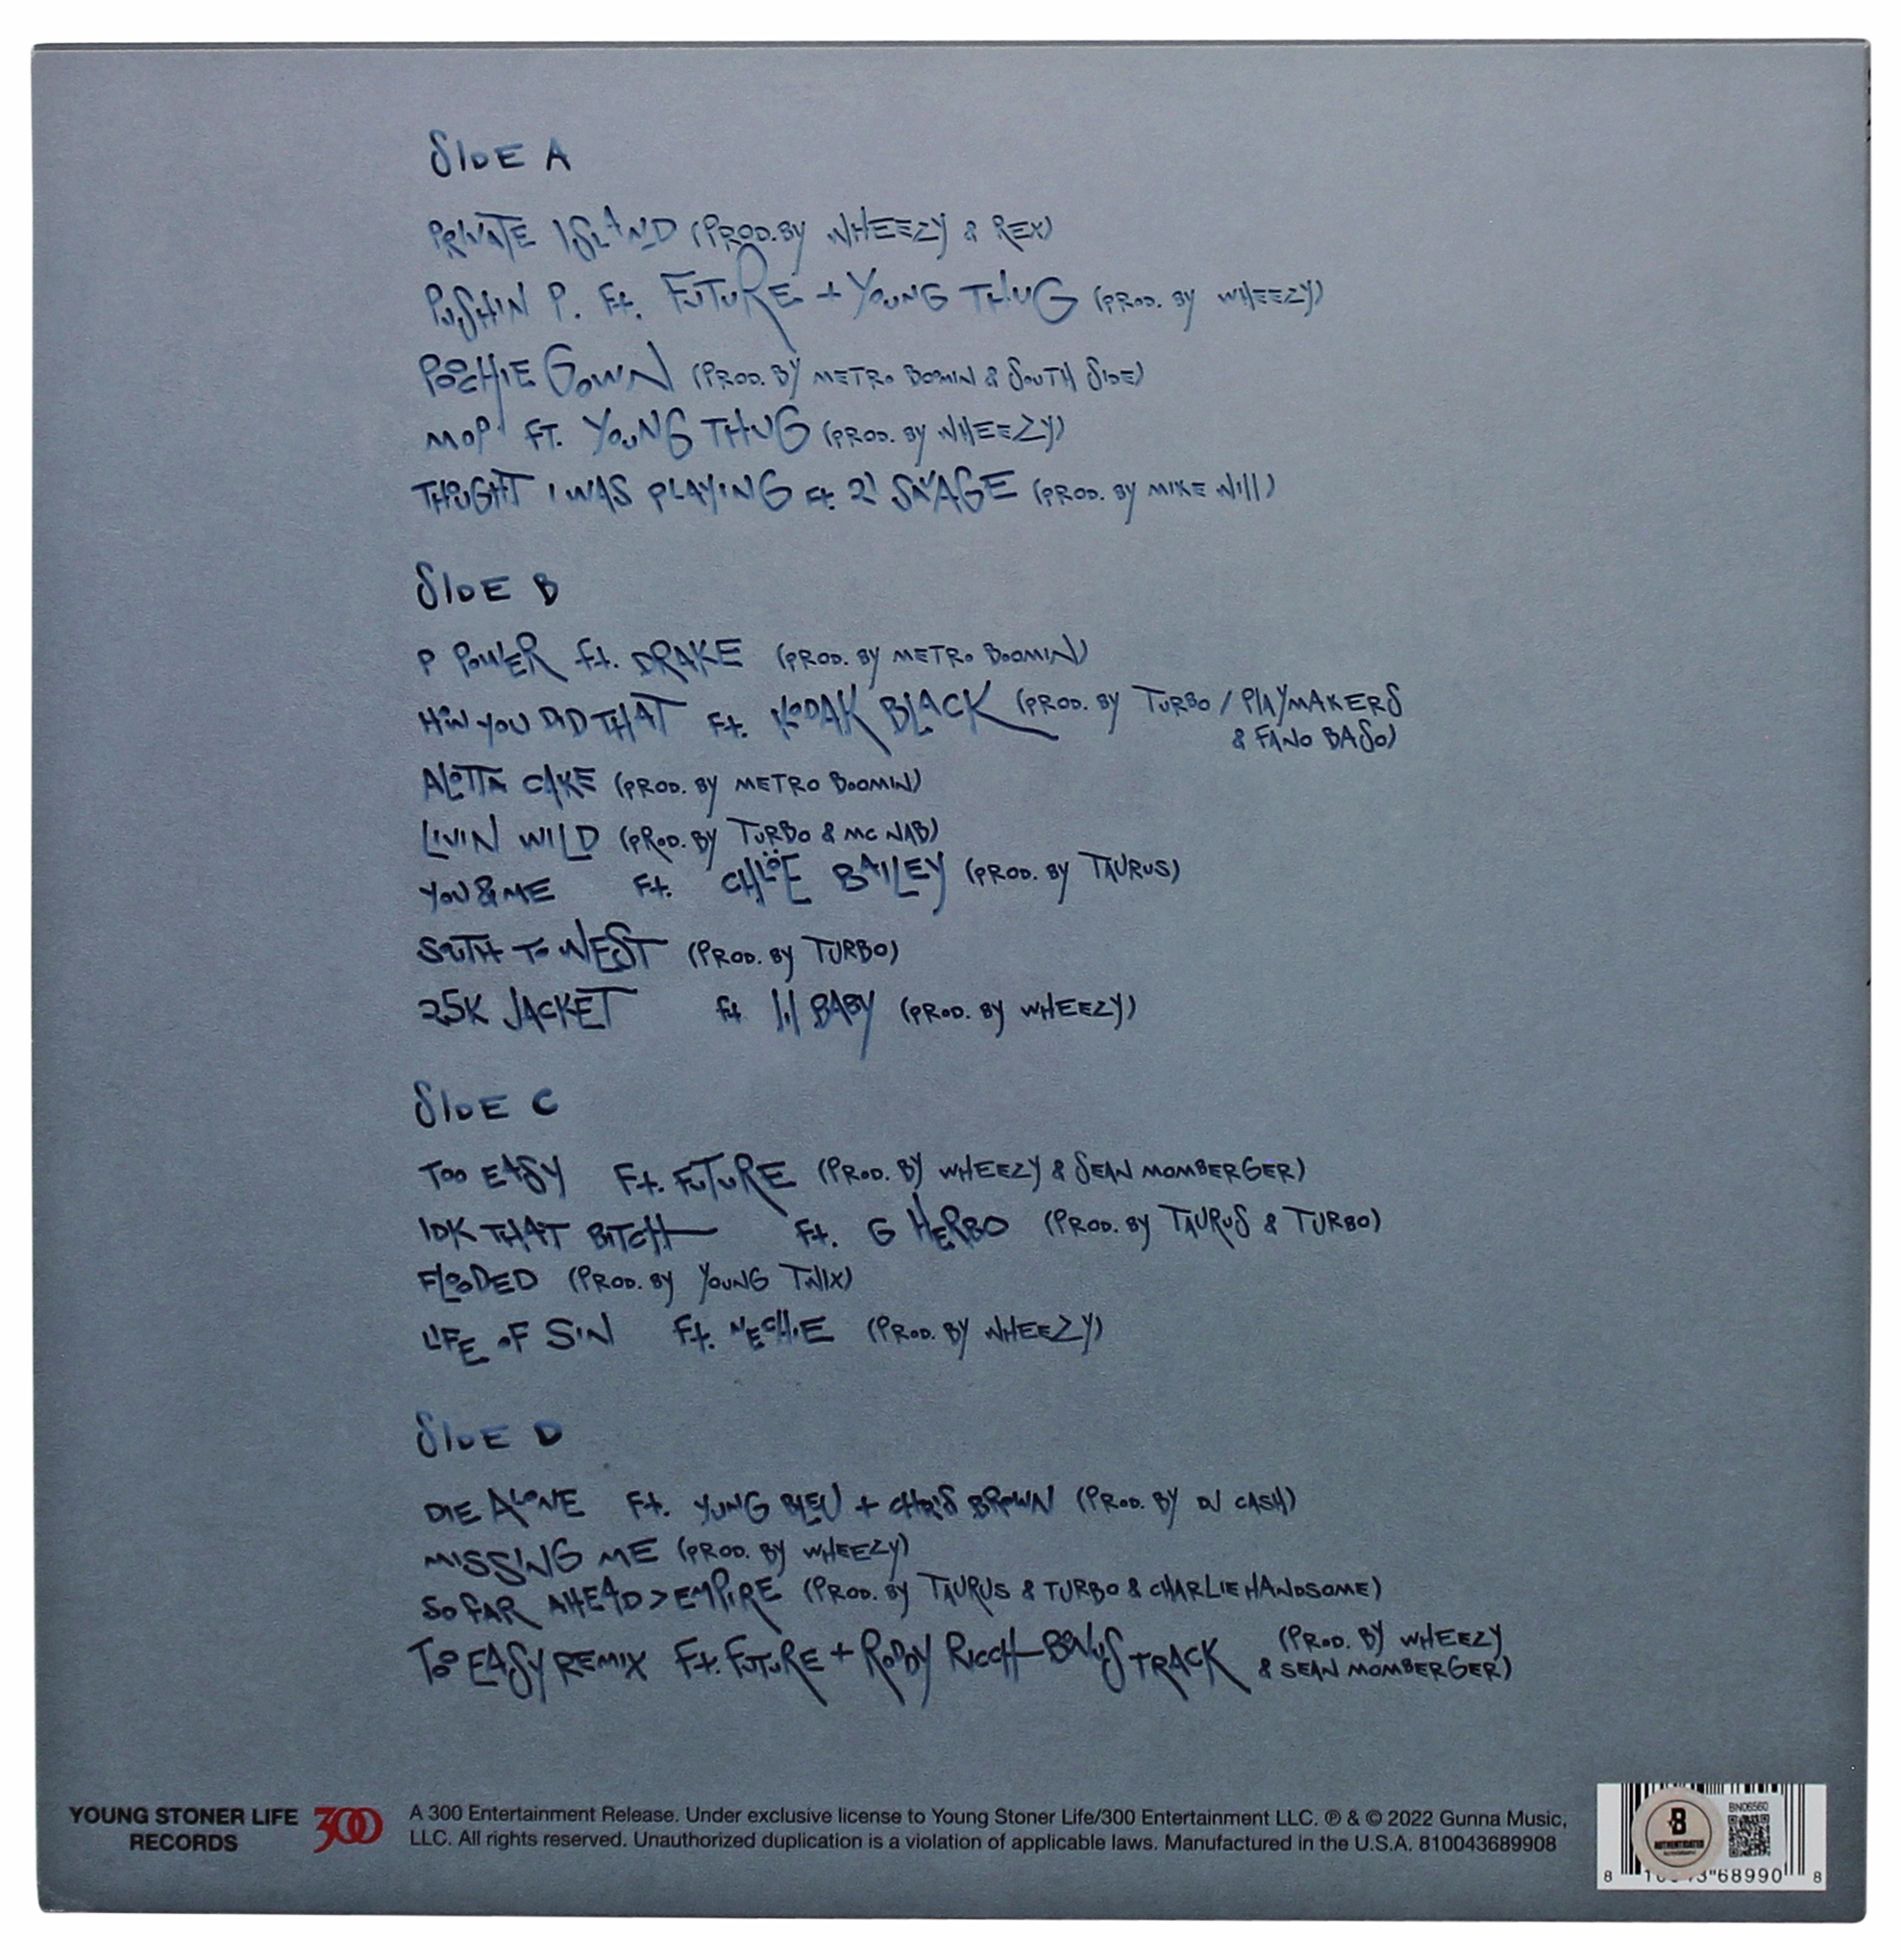 SIDE A
PRIVATE ISLAND (PROD. BY WHEEZY & REX)
PUSHIN P. Ft. FUTURE + YOUNG THUG (PROD. BY WHEEZY)
POOCHIE GOWN (PROD. BY METRO BOOMIN & SOUTH SIDE)
MOP FT. YOUNG THUG (PROD. BY WHEEZY)
THOUGHT I WAS PLAYING Ft. 21 SAVAGE (PROD. BY MIKE WILL)
SIDE B
P POWER ft. DRAKE (PROD. BY METRO BOOMIN)
HOW YOU DID THAT Ft. KODAK BLACK (PROD. BY TURBO / PLAYMAKERS
& FANO BASO)
ALOTTA CAKE (PROD. BY METRO BOOMIN)
LIVIN WILD (PROD. BY TURBO & MC NAB)
YOU & ME Ft. CHLÖE BAILEY (PROD. BY TAURUS)
SOUTH TO WEST (PROD. BY TURBO)
25K JACKET ft lil BABY (PROD. BY WHEEZY)
SIDE C
TOO EASY Ft. FUTURE (PROD. BY WHEEZY & SEAN MOMBERGER)
IDK THAT BITCH Ft. G HERBO (PROD. BY TAURUS & TURBO)
FLOODED (PROD. BY YOUNG TWIX)
LIFE OF SIN Ft. NECHIE (PROD. BY WHEEZY)
SIDE D
DIE ALONE Ft. YUNG BLEU + CHRIS BROWN (PROD. BY DJ CASH)
MISSING ME (PROD. BY WHEEZY)
SO FAR AHEAD > EMPIRE (PROD. BY TAURUS & TURBO & CHARLIE HANDSOME)
TOO EASY REMIX Ft. FUTURE + RODDY RICCH - BONUS TRACK (PROD. BY WHEEZY
& SEAN MOMBERGER)
YOUNG STONER LIFE
RECORDS
300
A 300 Entertainment Release. Under exclusive license to Young Stoner Life/300 Entertainment LLC. ℗ & © 2022 Gunna Music,
LLC. All rights reserved. Unauthorized duplication is a violation of applicable laws. Manufactured in the U.S.A. 810043689908
B
AUTHENTICATED
BN06560
8 68990 8